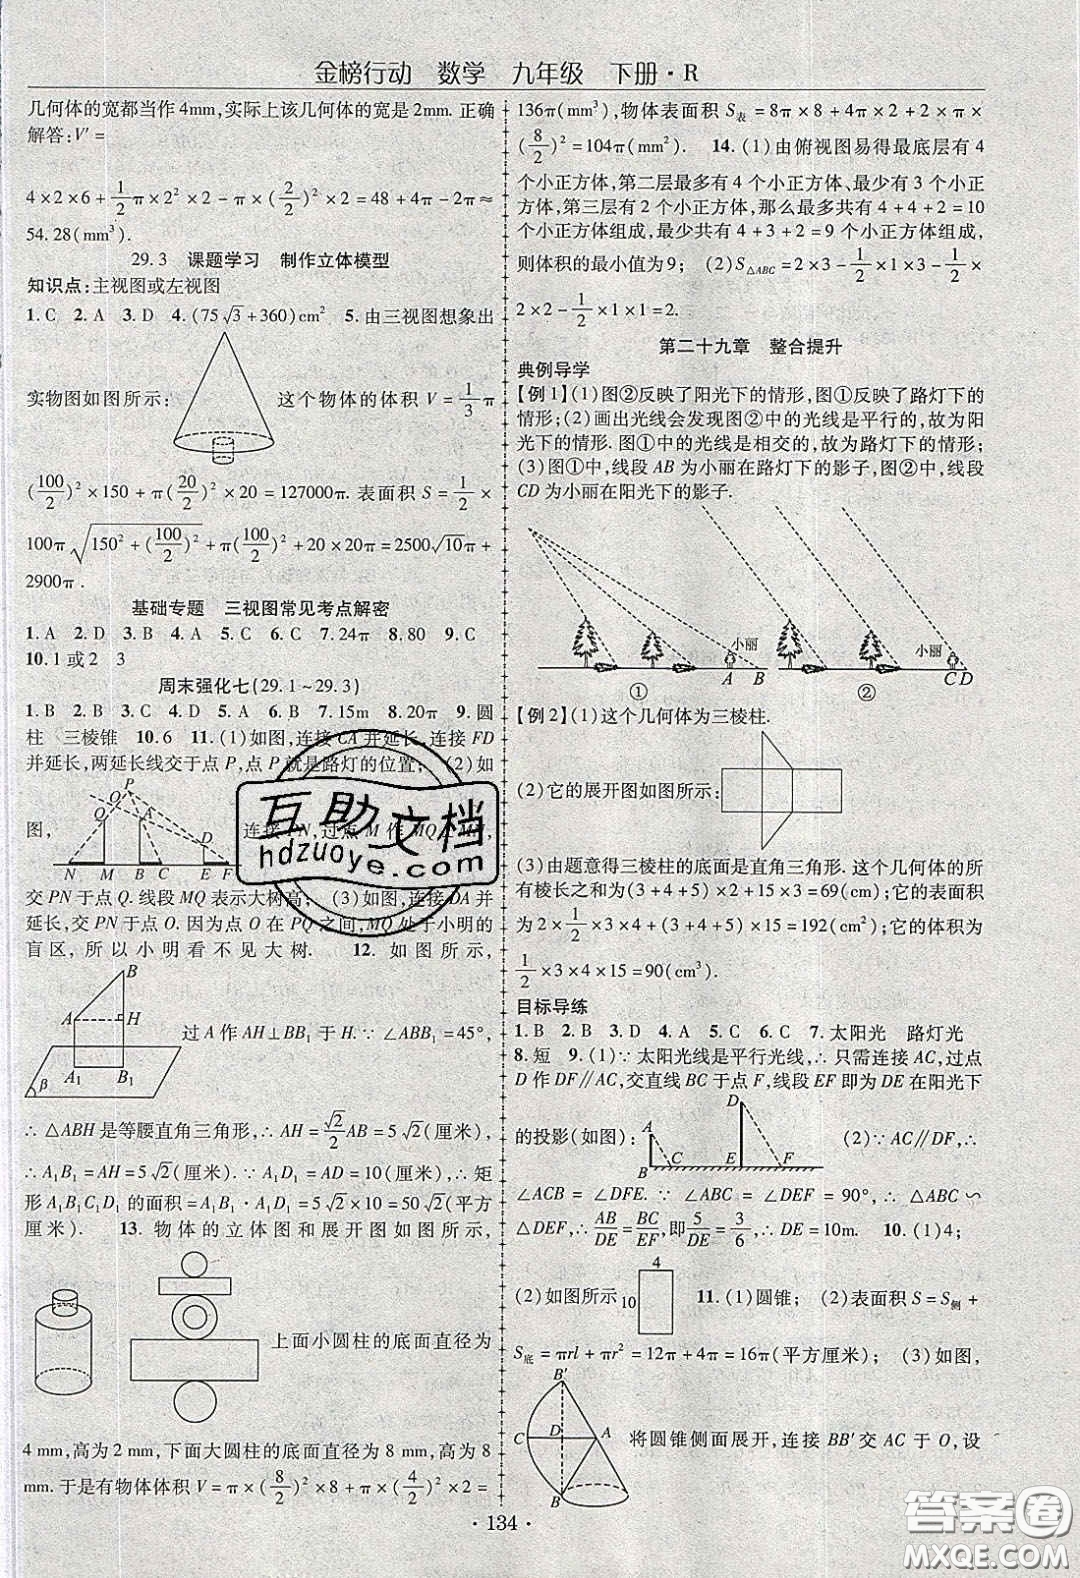 金榜行动 数学 九年级 下册·R
几何体的宽都当作4mm,实际上该几何体的宽是2mm.正确
解答:V′=
4×2×6+1/2π×2²×2-π×(2/2)²×2=48+4π-2π≈
54.28(mm³).
29.3 课题学习 制作立体模型
知识点:主视图或左视图
1.C 2.A 3.D 4.(75√3+360)cm² 5.由三视图想象出
实物图如图所示: 这个物体的体积V=1/3π
(100/2)²×150+π×(20/2)²×20=127000π.表面积S=1/2×
100π√(150²+(100/2)²)+π(100/2)²+20×20π=2500√10π+
2900π.
基础专题 三视图常见考点解密
1.A 2.D 3.B 4.A 5.C 6.C 7.24π 8.80 9.C
10.1或2 3
周末强化七(29.1~29.3)
1.B 2.B 3.C 4.D 5.A 6.B 7.15m 8.20π 9.圆
柱 三棱锥 10.6 11.(1)如图,连接CA并延长,连接FD
并延长,两延长线交于点P,点P就是路灯的位置; (2)如
图, 连接PN,过点M作MQ⊥MN,
P
Q O A D
N M B C E F
交PN于点Q.线段MQ表示大树高; (3)如图,连接DA并
延长,交PN于点O.因为点O在PQ之间,MQ处于小明的
盲区,所以小明看不见大树. 12.如图所示,
B
A H
A₁ B₁
β
过A作AH⊥BB₁于H.∵∠BAH=45°,
∴△ABH是等腰直角三角形,∴AH=√2/2AB=5√2(厘米),
∴A₁B₁=AH=5√2(厘米).∵A₁D₁=AD=10(厘米),∴矩
形A₁B₁C₁D₁的面积=A₁B₁·A₁D₁=5√2×10=50√2(平方
厘米). 13.物体的立体图和展开图如图所示,
上面小圆柱的底面直径为
4 mm,高为2 mm,下面大圆柱的底面直径为8 mm,高为8
mm.于是有物体体积V=π×(8/2)²×8+π×(4/2)²×2=
136π(mm³),物体表面积S表=8π×8+4π×2+2×π×
(8/2)²=104π(mm²). 14.(1)由俯视图易得最底层有4
个小正方体,第二层最多有4个小正方体、最少有3个小正
方体,第三层有2个小正方体,那么最多共有4+4+2=10
个小正方体组成,最少共有4+3+2=9个小正方体组成,
所以n的最小值为9; (2)S△ABC=2×3-1/2×1×3-1/2×
2×2-1/2×1×1=2.
第二十九章 整合提升
典例导学
【例1】(1)图②反映了阳光下的情形,图①反映了路灯下的
情形;(2)画出光线会发现图②中的光线是平行的,故为阳
光下的情形.图①中的光线是相交的,故为路灯下的情形;
(3)图①中,线段AB为小丽在路灯下的影子,图②中,线段
CD为小丽在阳光下的影子.
小丽 小丽
A B C D
① ②
【例2】(1)这个几何体为三棱柱.
(2)它的展开图如图所示:
(3)由题意得三棱柱的底面是直角三角形.这个几何体的所
有棱长之和为(3+4+5)×2+15×3=69(cm);它的表面积
为1/2×3×4×2+(3+4+5)×15=192(cm²);它的体积为
1/2×3×4×15=90(cm³).
目标导练
1.B 2.B 3.D 4.A 5.C 6.C 7.太阳光 路灯光
8.短 9.(1)∵太阳光线是平行光线,∴只需连接AC,过点
D作DF∥AC,交直线BC于点F,线段EF即为DE在阳光下
的投影(如图): (2)∵AC∥DF,∴
D
A
B C E F
∠ACB=∠DFE.∵∠ABC=∠DEF=90°,∴△ABC∽
△DEF,∴AB/DE=BC/EF,即5/DE=3/6,∴DE=10m. 10.(1)4;
4
(2)如图所示 10 11.(1)圆锥; (2)表面积S=S侧+
S底=πrl+πr²=12π+4π=16π(平方厘米); (3)如图,
B′
C D A
B
将圆锥侧面展开,连接BB′交AC于O,设
·134·
互助文档
hdzuoye.com
答案圈
MXQE.COM